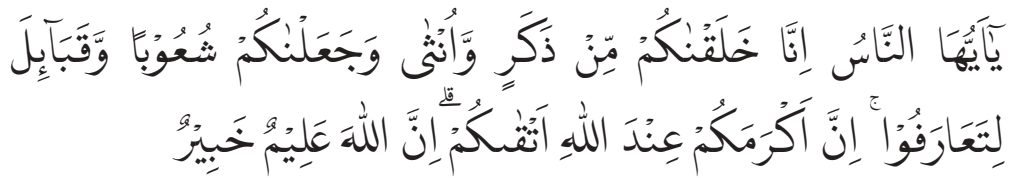 يٰٓاَيُّهَا النَّاسُ اِنَّا خَلَقْنٰكُمْ مِّنْ ذَكَرٍ وَّاُنْثٰى وَجَعَلْنٰكُمْ شُعُوْبًا وَّقَبَاۤئِلَ
لِتَعَارَفُوْا ۚ اِنَّ اَكْرَمَكُمْ عِنْدَ اللّٰهِ اَتْقٰىكُمْ ۗ اِنَّ اللّٰهَ عَلِيْمٌ خَبِيْرٌ